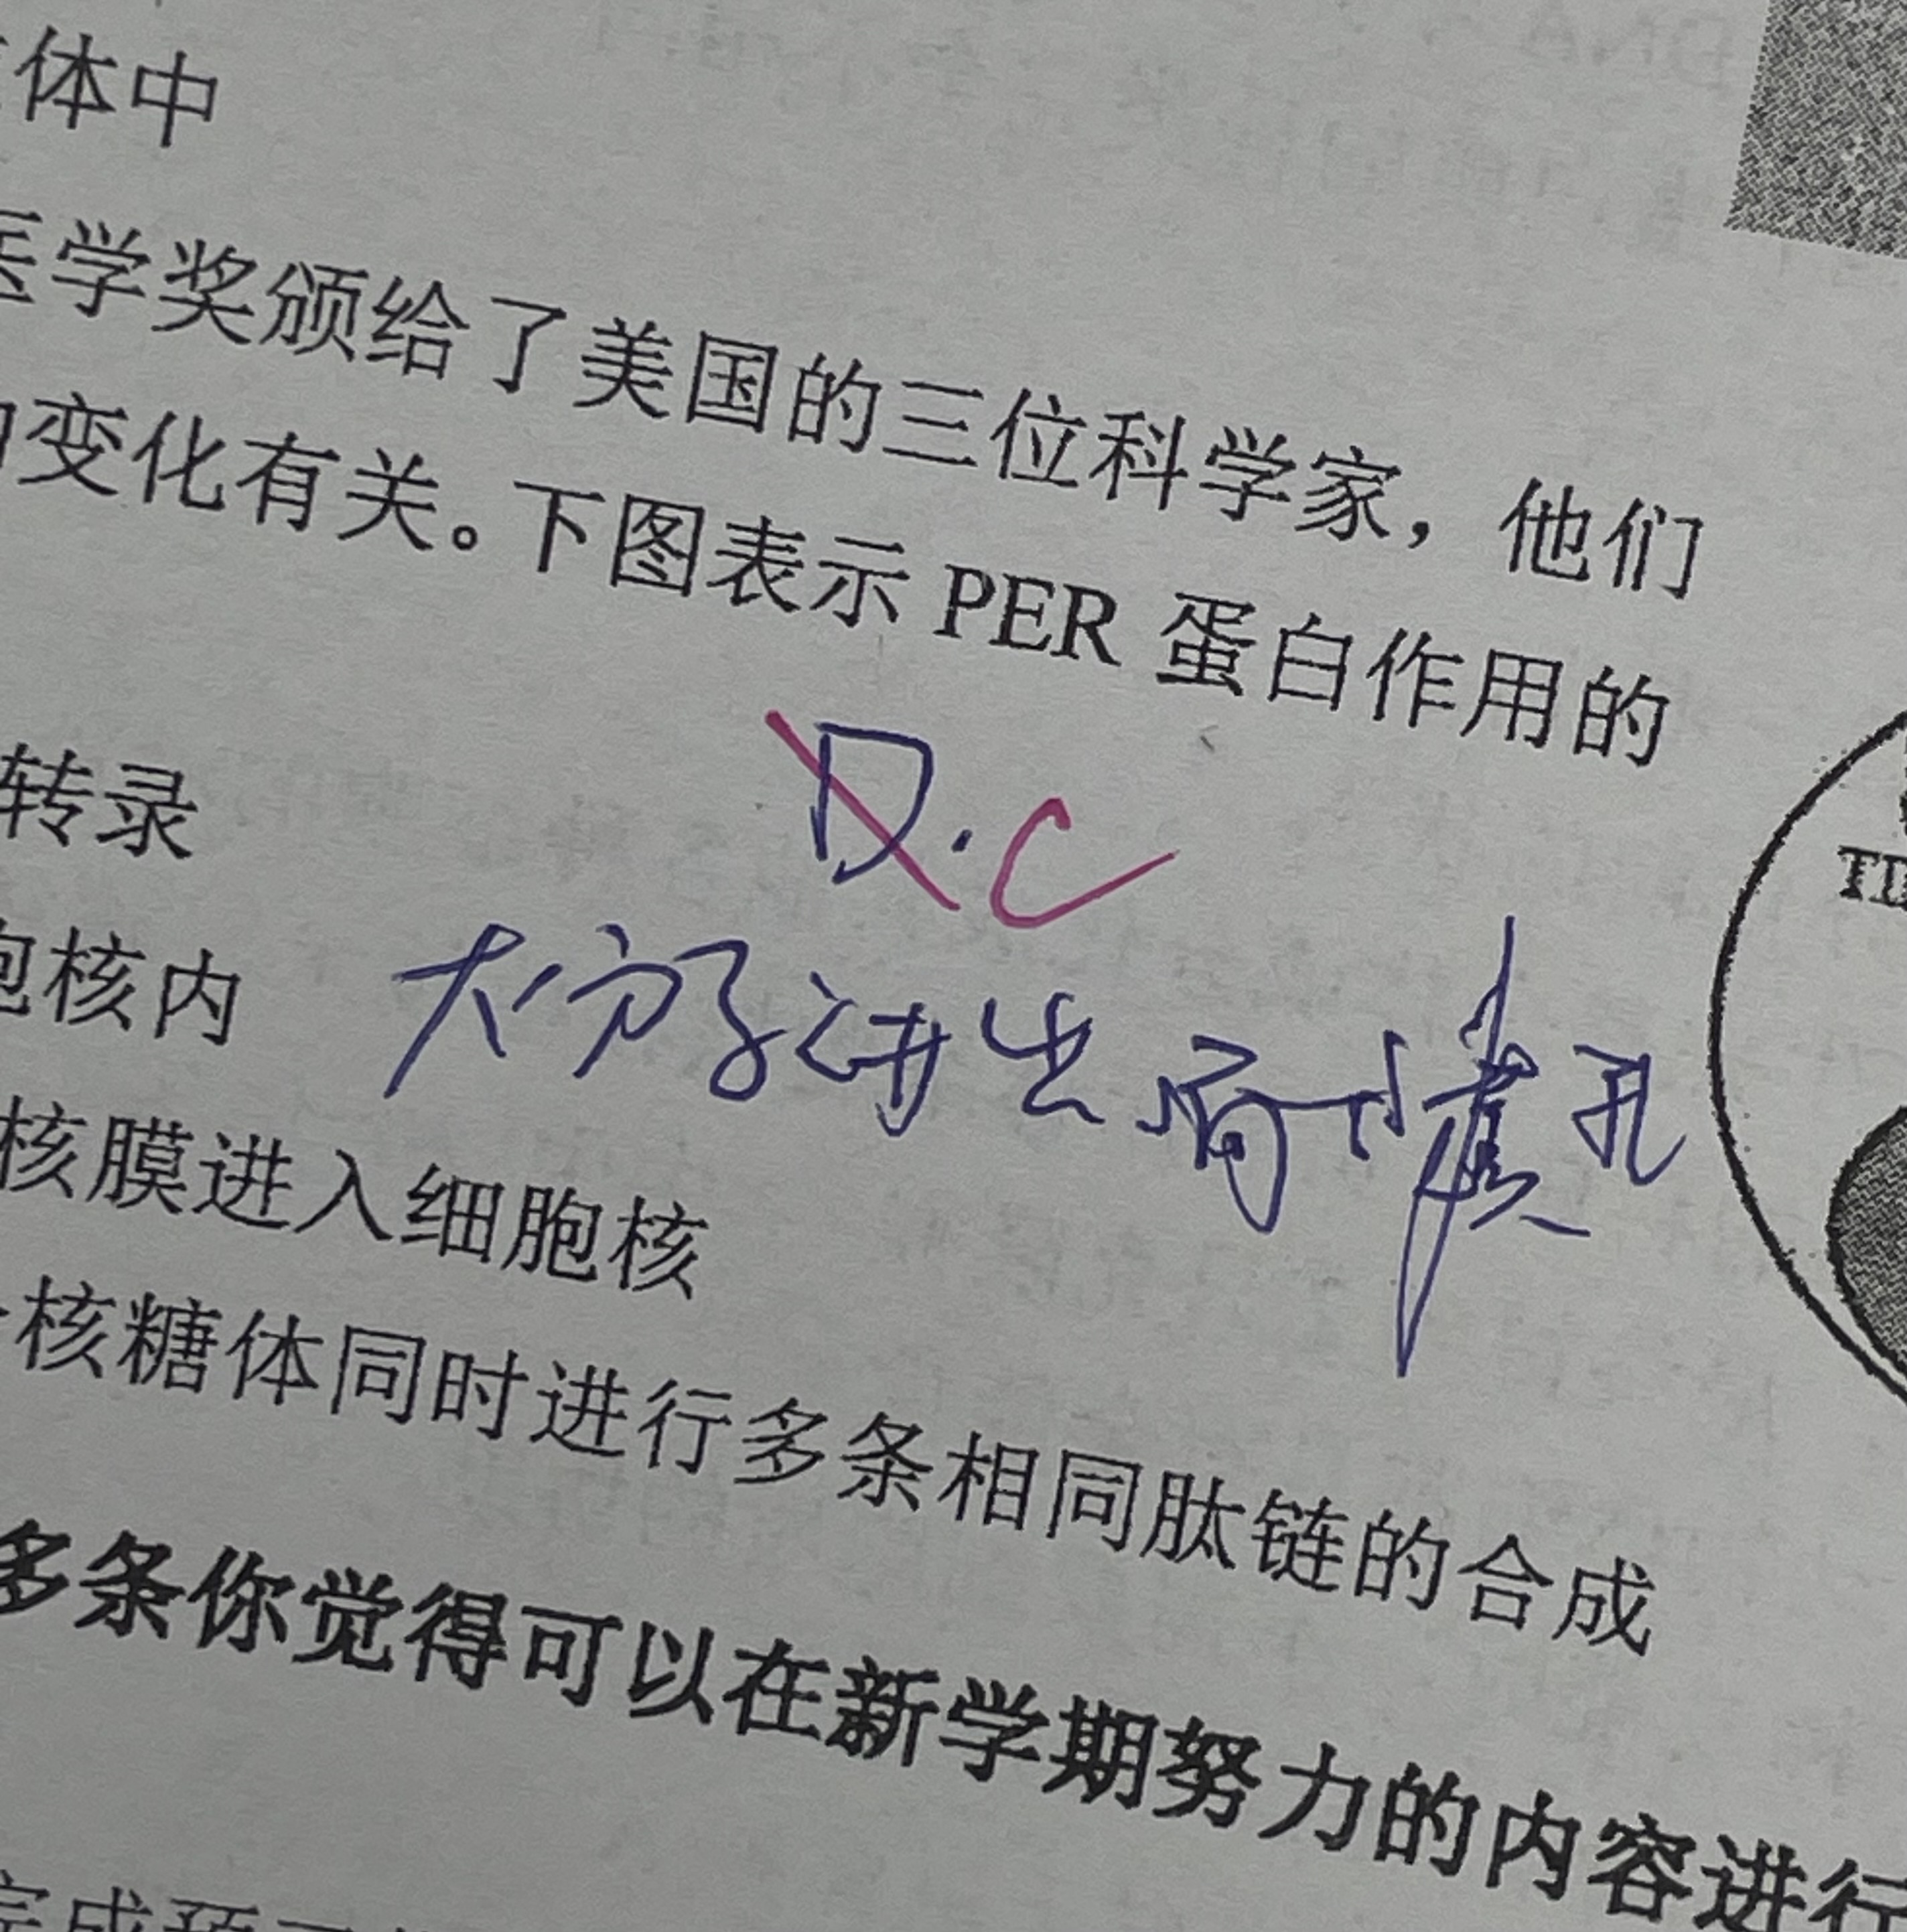 体中
医学奖颁给了美国的三位科学家，他们
变化有关。下图表示 PER 蛋白作用的
转录
D.C
胞核内
大分子进出需
孔
核膜进入细胞核
核糖体同时进行多条相同肽链的合成
多条你觉得可以在新学期努力的内容进行
完成预